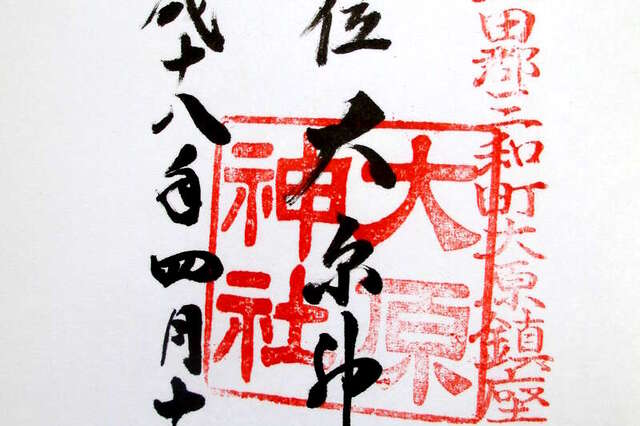 田郡三和町大原鎮座
位 大原神
大原
神社
成十八年四月十